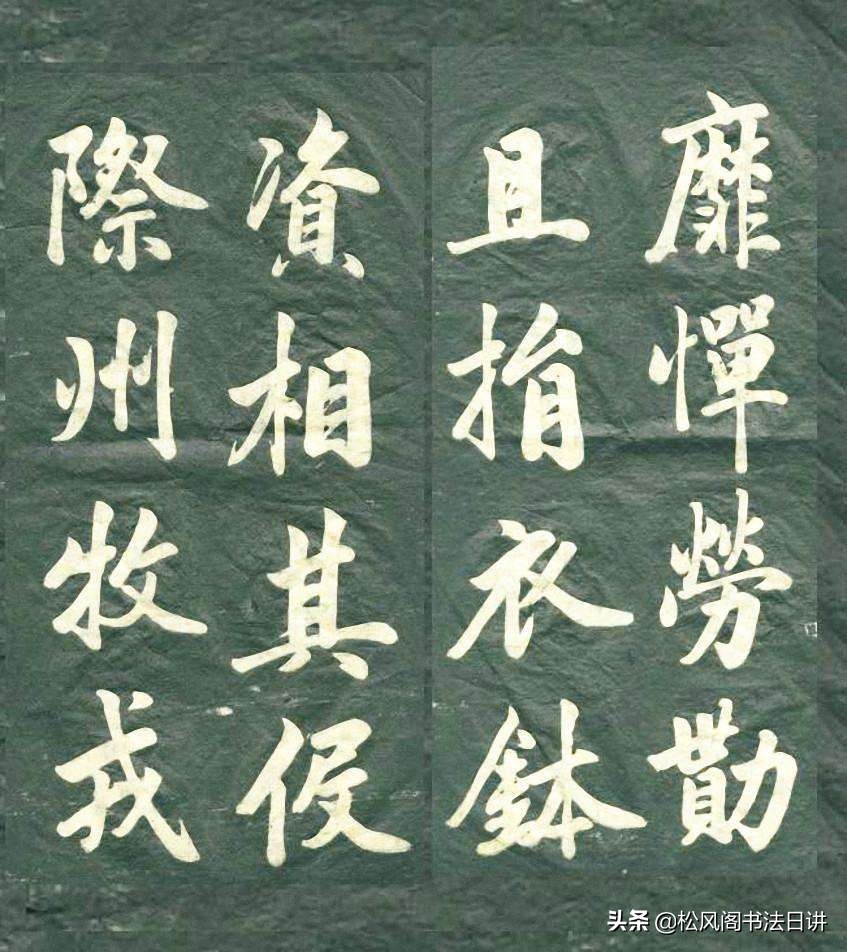 靡憚勞勩
且捐衣鉢
資相其役
際州牧戎
头条 @松风阁书法日讲